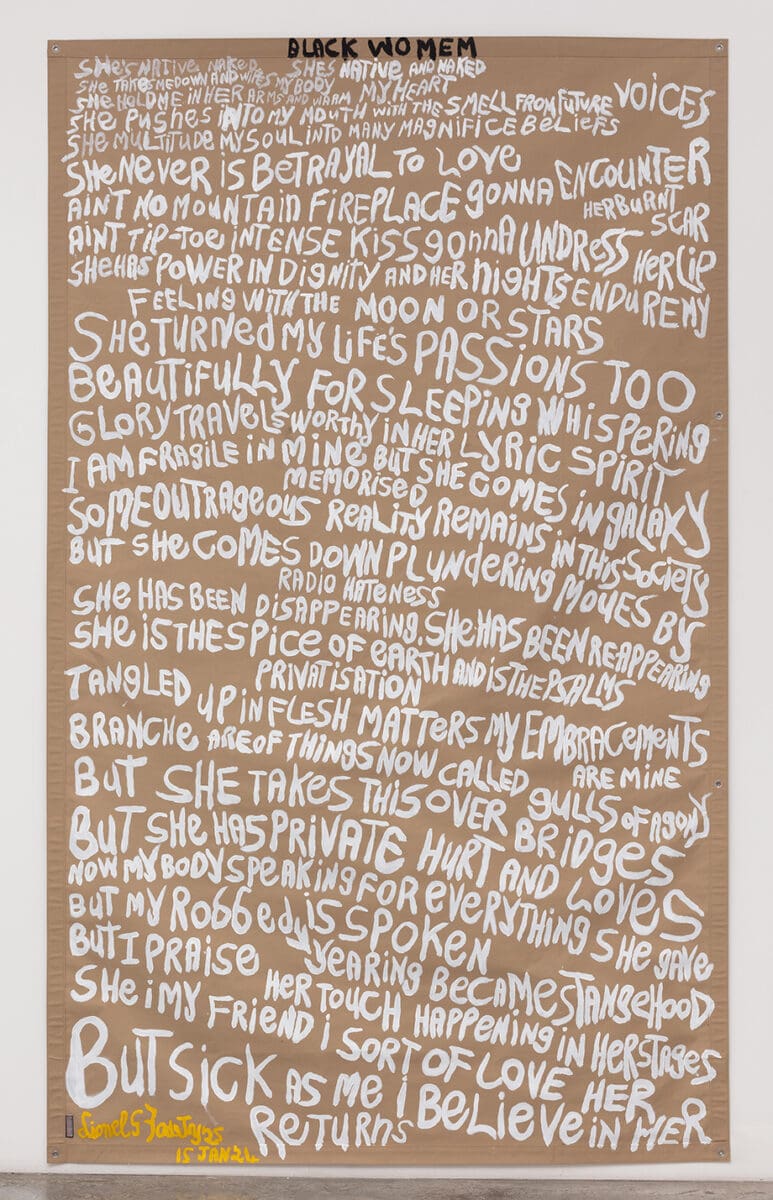 BLACK WOMEM
SHE'S NATIVE NAKED SHES NATIVE AND NAKED
SHE TAKES ME DOWN AND WIPES MY BODY MY HEART
SHE HOLD ME IN HER ARMS AND WARM
SHE PUSHES INTO MY MOUTH WITH THE SMELL FROM FUTURE VOICES
SHE MULTITUDE MY SOUL INTO MANY MAGNIFICE BELIEFS
SHE NEVER IS BETRAYAL TO LOVE ENCOUNTER
AINT NO MOUNTAIN FIREPLACE GONNA HER BURNT SCAR
AINT TIP-TOE INTENSE KISS GONNA UNDRESS HER LIP
SHE HAS POWER IN DIGNITY AND HER NIGHTS ENDURE MY
FEELING WITH THE MOON OR STARS
SHE TURNED MY LIFE'S PASSIONS TOO
BEAUTIFULLY FOR SLEEPING WHISPERING
GLORY TRAVELS WORTHY IN HER LYRIC SPIRIT
I AM FRAGILE IN MINE BUT SHE COMES IN GALAXY
MEMORISED
SOME OUTRAGEOUS REALITY REMAINS IN THIS SOCIETY
BUT SHE COMES DOWN PLUNDERING MOVES BY
RADIO HATENESS
SHE HAS BEEN DISAPPEARING. SHE HAS BEEN REAPPEARING
SHE IS THE SPICE OF EARTH AND IS THE PSALMS
PRIVATISATION
TANGLED UP IN FLESH MATTERS MY EMBRACEMENTS
BRANCHE ARE OF THINGS NOW CALLED ARE MINE
BUT SHE TAKES THIS OVER GULLS OF AGONY
BRIDGES
BUT SHE HAS PRIVATE HURT AND LOVES
NOW MY BODY SPEAKING FOR EVERYTHING SHE GAVE
BUT MY ROBBED IS SPOKEN
BUT I PRAISE YEARING BECAME STANGEHOOD
HER TOUCH HAPPENING IN HER STAGES
SHE I MY FRIEND I SORT OF LOVE HER
BUT SICK AS ME I BELIEVE IN HER
RETURNS
15 JAN 24